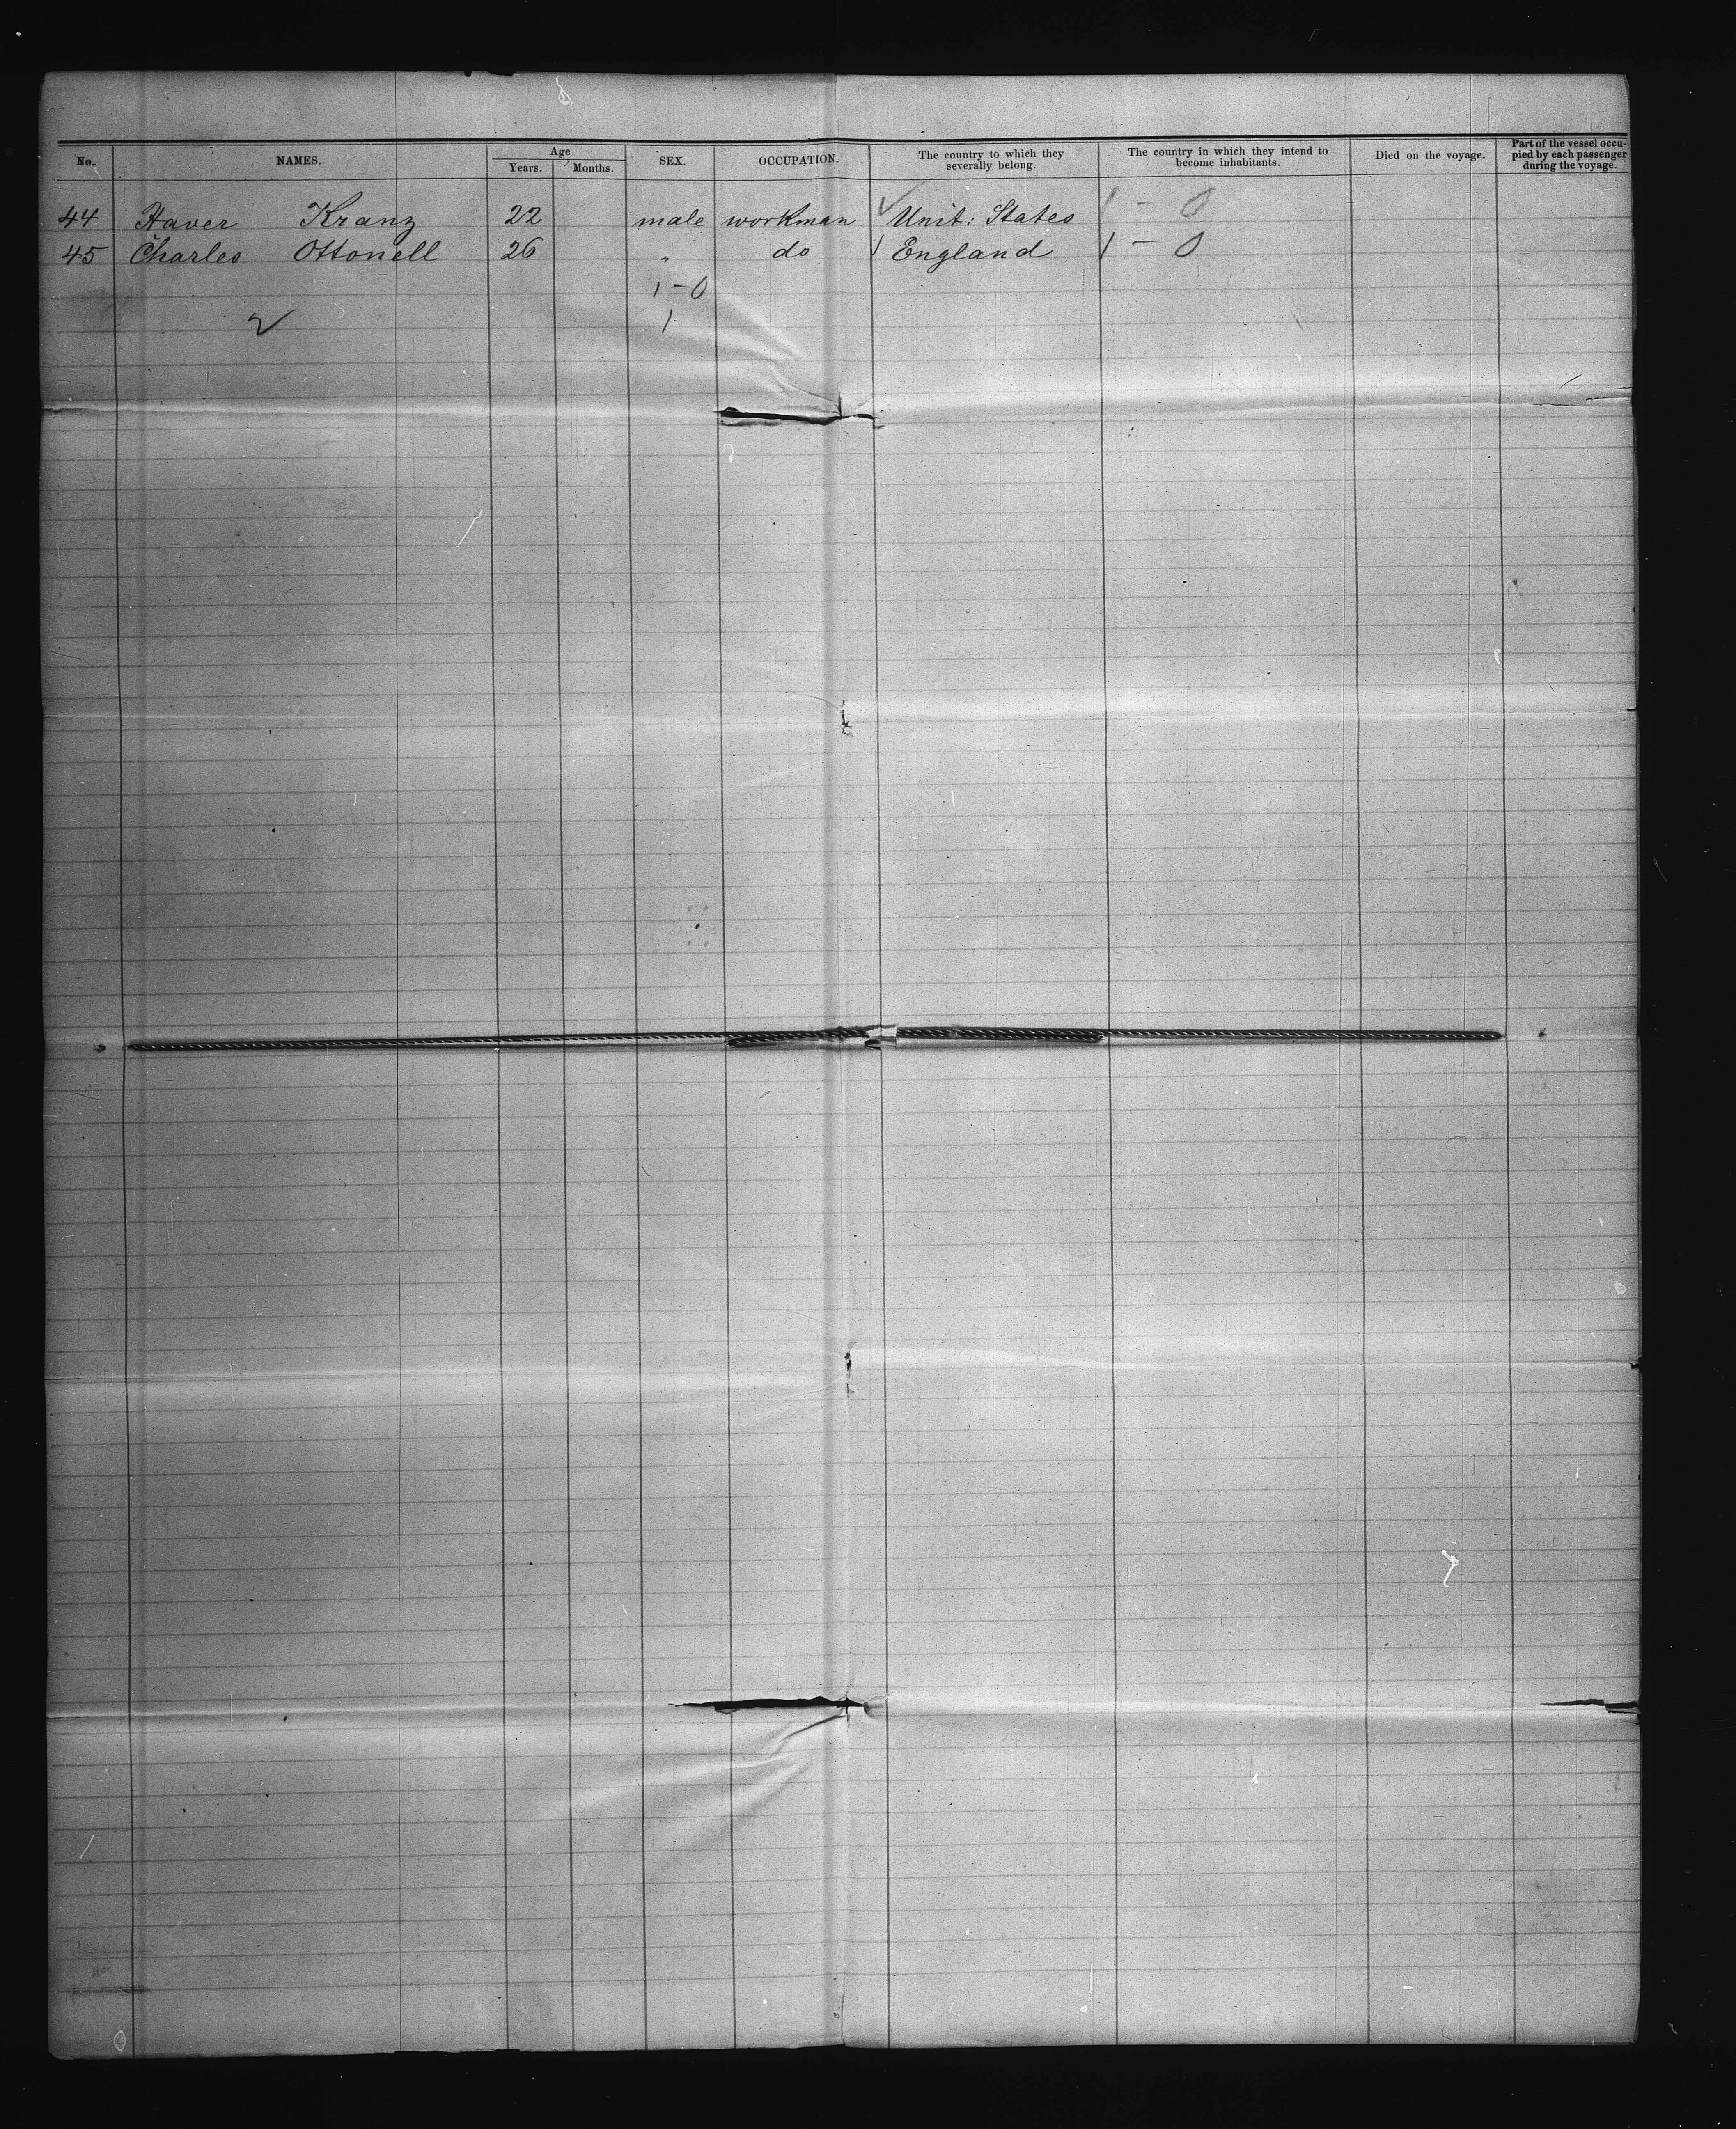 No. NAMES. Age Years. Months. SEX. OCCUPATION. The country to which they severally belong. The country in which they intend to become inhabitants. Died on the voyage. Part of the vessel occupied by each passenger during the voyage.
44 Xaver Kranz 22 male workman ✓ Unit: States 1 - 0
45 Charles Ottonell 26 " do 1 England 1 - 0
1 - 0
2 ✓ 1